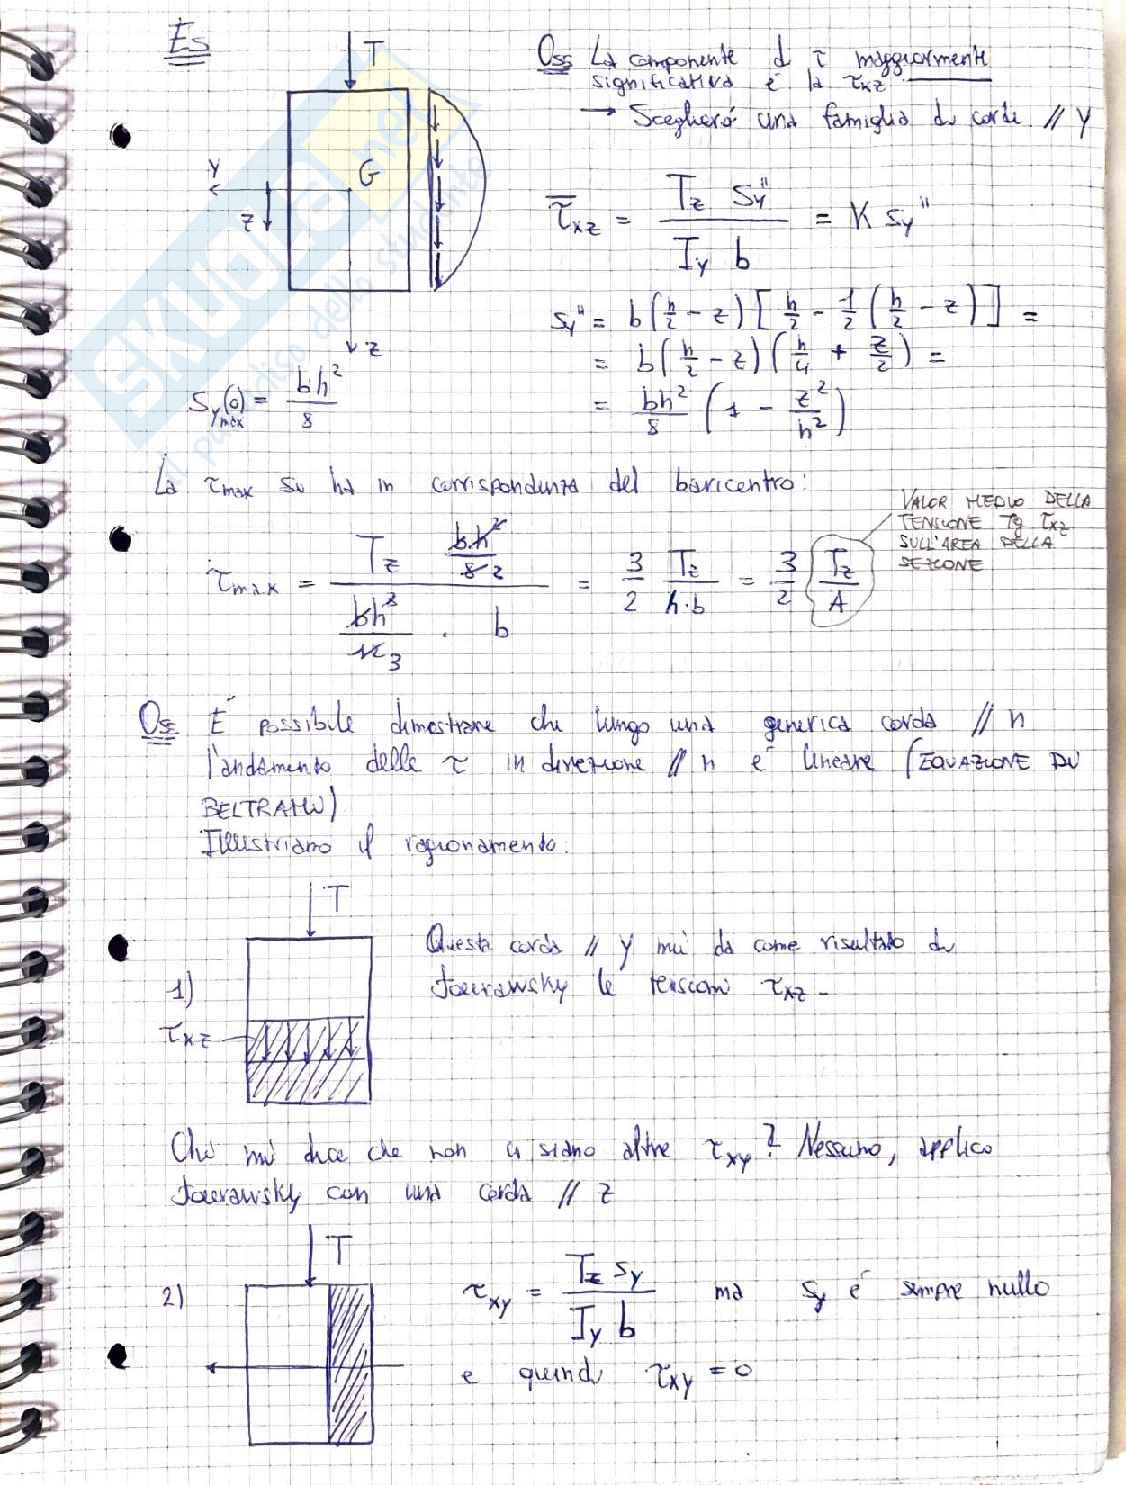 Es
T
Oss La componente di τ maggiormente
significativa è la τxz
→ Sceglierò una famiglia di corde // y
y
G
z
z
τ̅xz = Tz Sy" / Iy b = K Sy"
Sy" = b(h/2 - z)[h/2 - 1/2(h/2 - z)] =
= b(h/2 - z)(h/4 + z/2) =
= bh²/8 (1 - z²/h²)
Sy(0)max = bh²/8
SKUOLA.net
il paradiso dello studente
La τmax si ha in corrispondenza del baricentro:
VALOR MEDIO DELLA
TENSIONE Tg τxz
SULL'AREA DELLA
SEZIONE
τmax = Tz bh²/8 2 / bh³/12 3 · b = 3/2 Tz/h·b = 3/2 Tz/A
Oss È possibile dimostrare che lungo una generica corda // n
l'andamento delle τ in direzione // n è lineare (EQUAZIONE DI
BELTRAMI)
Illustriamo il ragionamento.
T
1)
τxz
Questa corda // y mi dà come risultato di
Jourawsky le tensioni τxz -
Chi mi dice che non ci siano altre τxy? Nessuno, applico
Jourawsky con una corda // z
T
2)
τxy = Tz Sy / Iy b ma Sy è sempre nullo
e quindi τxy = 0